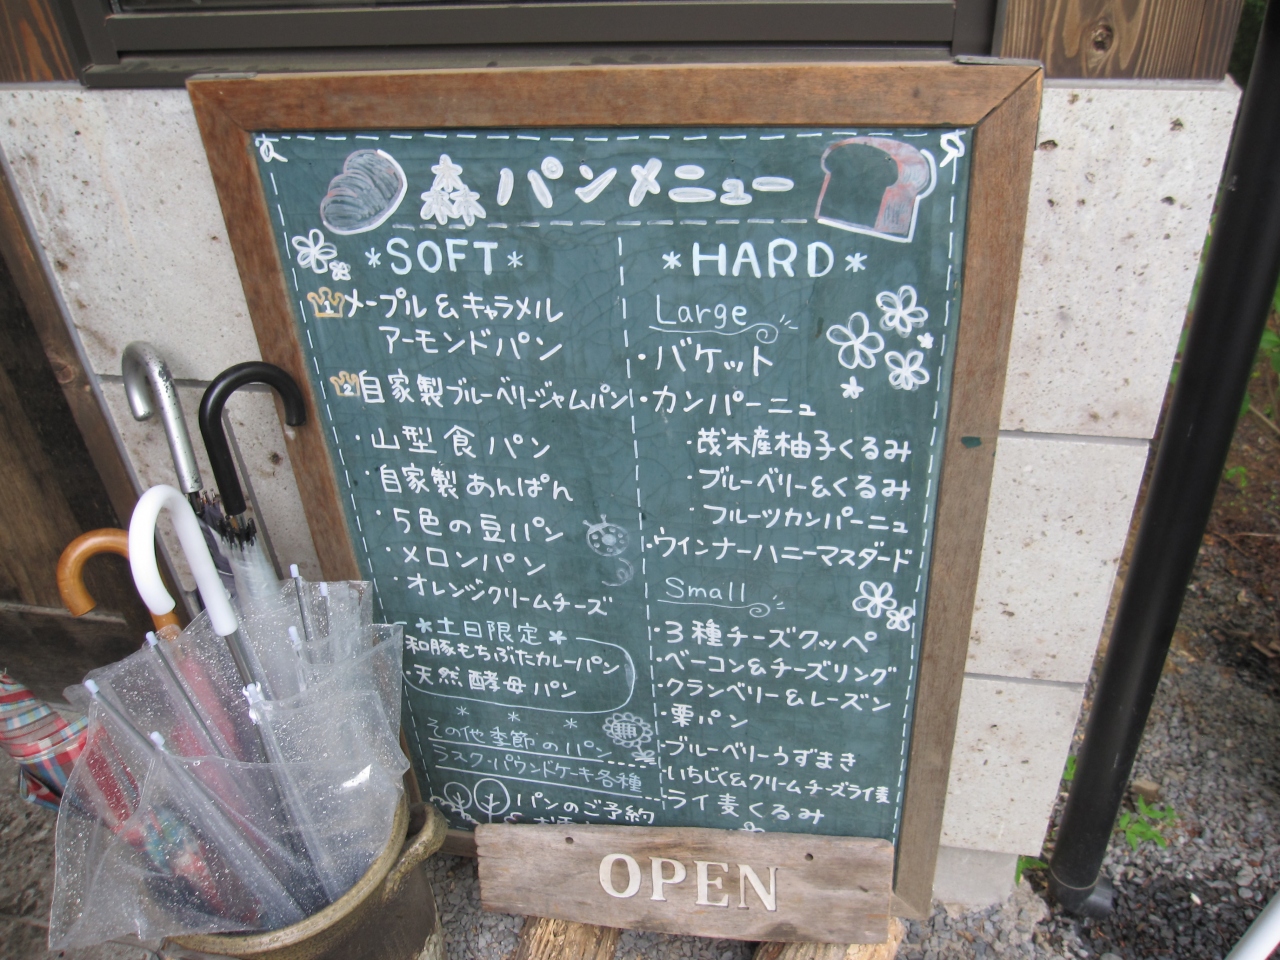 森パンメニュー
*SOFT*
1 メープル&キャラメル
アーモンドパン
2 自家製ブルーベリージャムパン
・山型食パン
・自家製あんぱん
・5色の豆パン
・メロンパン
・オレンジクリームチーズ
*土日限定*
和豚もちぶたカレーパン
・天然酵母パン
* * *
その他季節のパン
ラスク・パウンドケーキ各種
パンのご予約
*HARD*
Large
・バケット
・カンパーニュ
・茂木産柚子くるみ
・ブルーベリー&くるみ
・フルーツカンパーニュ
・ウインナーハニーマスタード
Small
・3種チーズクッペ
・ベーコン&チーズリング
・クランベリー&レーズン
・栗パン
・ブルーベリーうずまき
・いちじく&クリームチーズライ麦
・ライ麦くるみ
OPEN